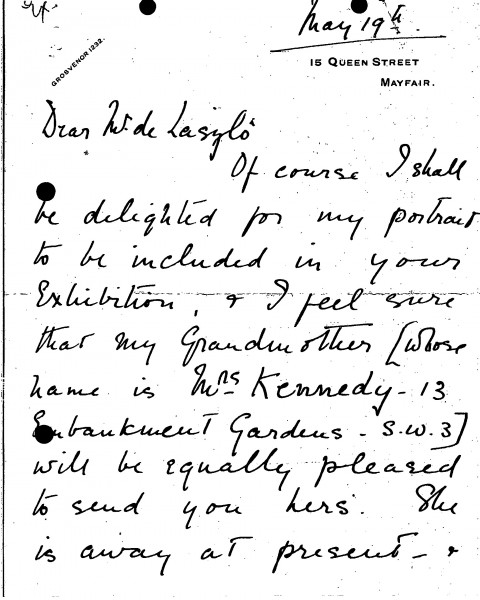 May 19th.
GROSVENOR 1232.
15 QUEEN STREET
MAYFAIR.
Dear Mr. de Laszló
Of course I shall
be delighted for my portrait
to be included in your
Exhibition, & I feel sure
that my Grandmother [whose
name is Mrs Kennedy - 13
Embankment Gardens - S.W.3]
will be equally pleased
to send you hers. She
is away at present - &